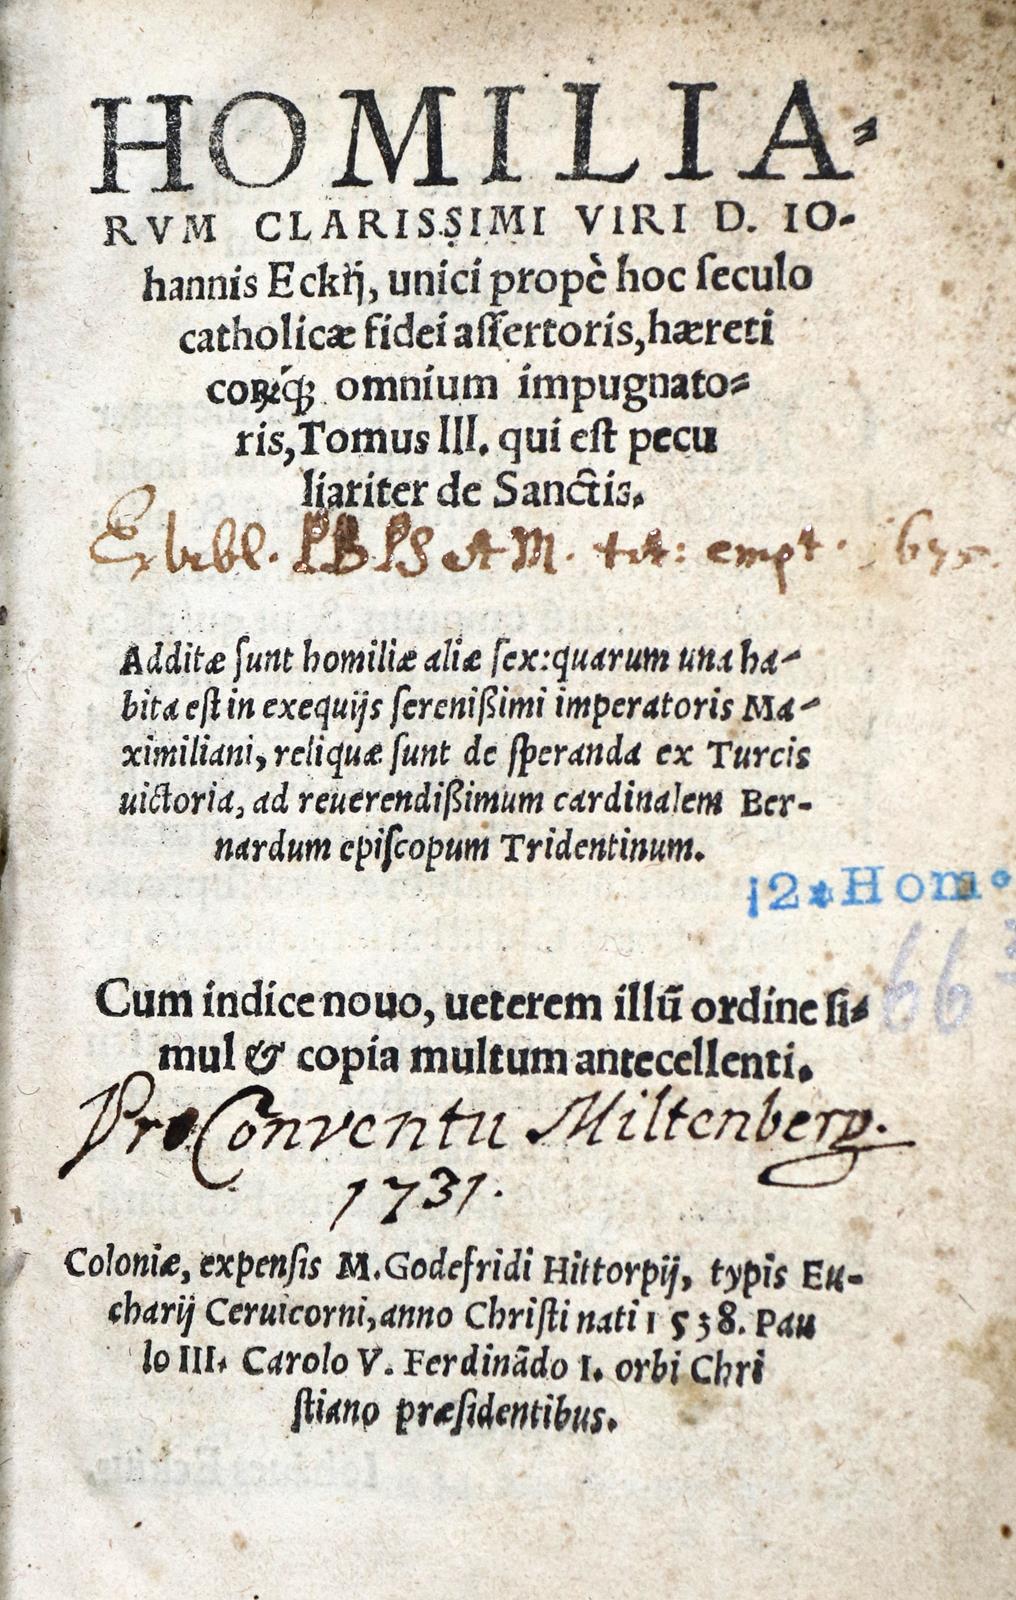 HOMILIA⸗
RVM CLARISSIMI VIRI D. IO-
hannis Eckij, unici propè hoc ſeculo
catholicæ fidei aſſertoris, hæreti
corꝝq́ꝫ omnium impugnato⸗
ris, Tomus III. qui eſt pecu
liariter de Sanctis.
Ex bibl. empt. 1675.
Additæ ſunt homiliæ aliæ ſex: quarum una ha-
bita eſt in exequijs ſereniſſimi imperatoris Ma-
ximiliani, reliquæ ſunt de ſperanda ex Turcis
uictoria, ad reuerendiſſimum cardinalem Ber-
nardum epiſcopum Tridentinum.
12*Hom°
66
Cum indice nouo, ueterem illū ordine ſi⸗
mul & copia multum antecellenti.
Pro Conventu Miltenberg.
1731.
Coloniæ, expenſis M. Godefridi Hittorpij, typis Eu-
charij Ceruicorni, anno Chriſti nati 1538. Pau
lo III. Carolo V. Ferdinãdo I. orbi Chri
ſtiano præſidentibus.